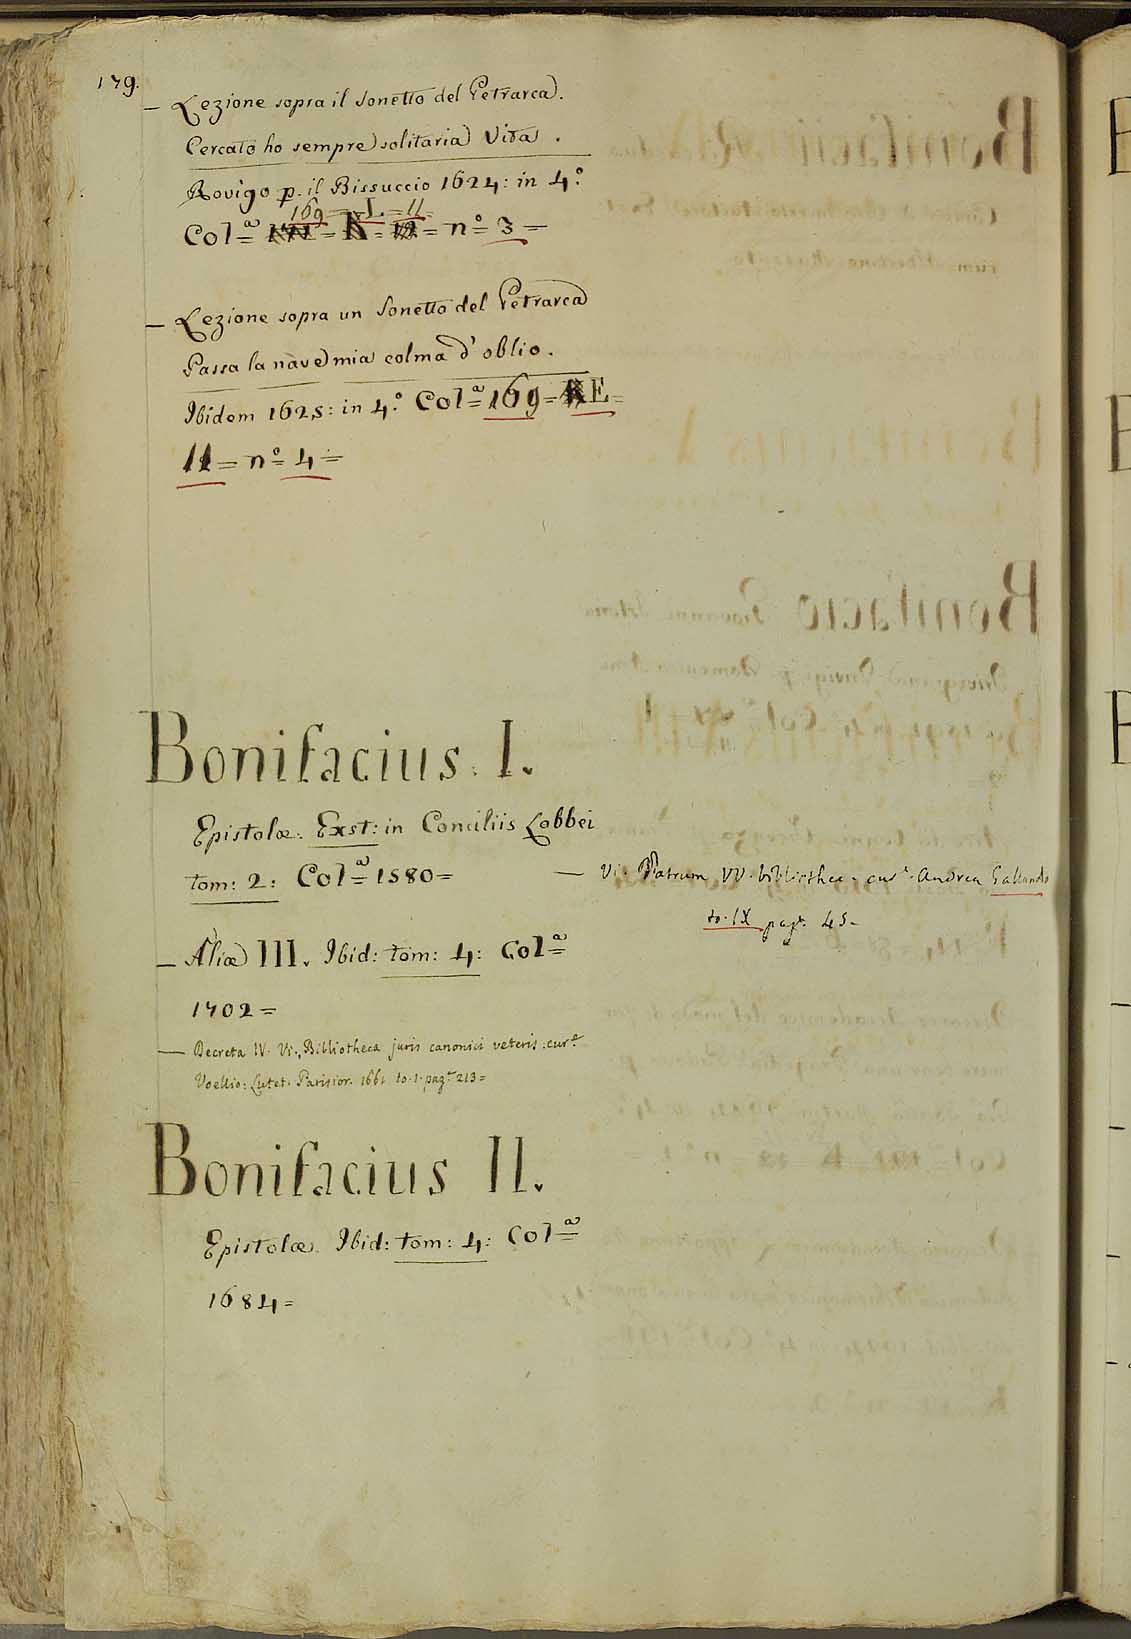 179.
— Lezione sopra il Sonetto del Petrarca.
Cercato ho sempre solitaria Vita.
Rovigo p. il Bissuccio 1624: in 4.º
169 = L = 11 =
Colª = n.º 3 =
— Lezione sopra un Sonetto del Petrarca
Passa la nave mia colma d'oblio.
Ibidem 1625: in 4.º Colª 169 = E =
11 = n.º 4 =
Bonifacius. I.
Epistolæ. Exst: in Conciliis Lobbei
tom: 2: Colª 1580 =
— Vi. Patrum VV. bibliothec. curª. Andrea Gallando
to. IX pagª. 45.
— Aliæ III. Ibid: tom: 4: Colª
1702 =
— Decreta IV. Vi., Bibliotheca juris canonici veteris: curª
Voellio: Lutet. Parisior. 1661 to. 1. pagª 213 =
Bonifacius II.
Epistolæ. Ibid: tom: 4: Colª
1684 =